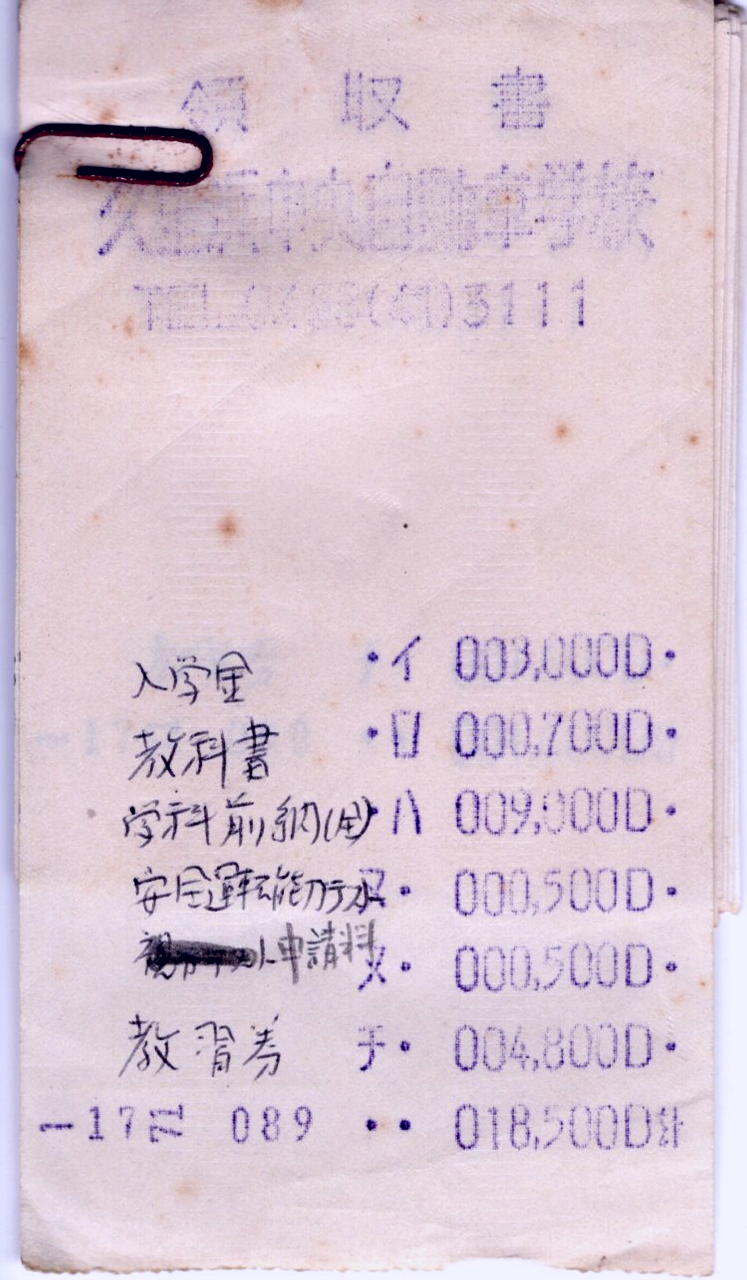 領 収 書
中央自動車学校
3111
入学金 ・イ 003,000D・
教科書 ・ロ 000,700D・
学科前納(用) ・ハ 009,000D・
安全運転 ヌ・ 000,500D・
申請料 ヌ・ 000,500D・
教習券 チ・ 004,800D・
-17 71 089 ・・ 018,500D